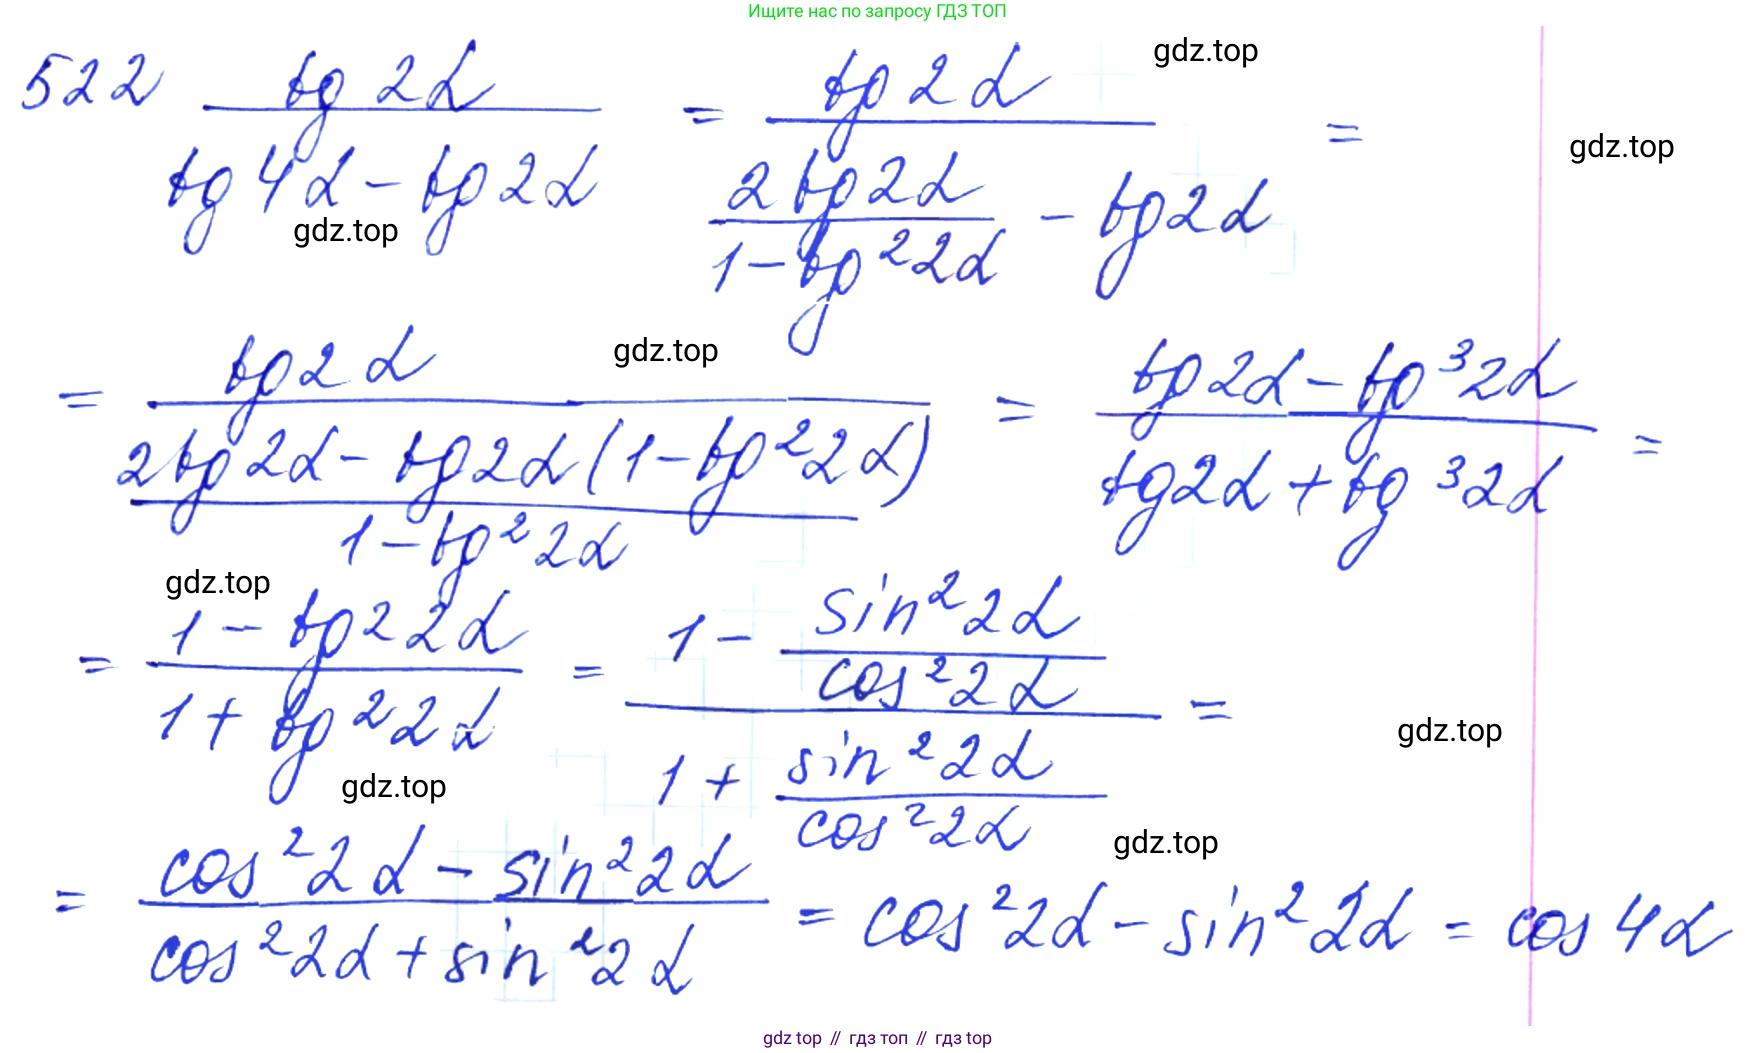 Ищите нас по запросу ГДЗ ТОП
522 tg 2α / (tg 4α − tg 2α) = tg 2α / (2 tg 2α / (1 − tg² 2α) − tg 2α) =
gdz.top
gdz.top
gdz.top
= tg 2α / ((2 tg 2α − tg 2α (1 − tg² 2α)) / (1 − tg² 2α)) = (tg 2α − tg³ 2α) / (tg 2α + tg³ 2α) =
gdz.top
gdz.top
= (1 − tg² 2α) / (1 + tg² 2α) = (1 − sin² 2α / cos² 2α) / (1 + sin² 2α / cos² 2α) =
gdz.top
gdz.top
gdz.top
= (cos² 2α − sin² 2α) / (cos² 2α + sin² 2α) = cos² 2α − sin² 2α = cos 4α
gdz top // гдз топ // гдз top